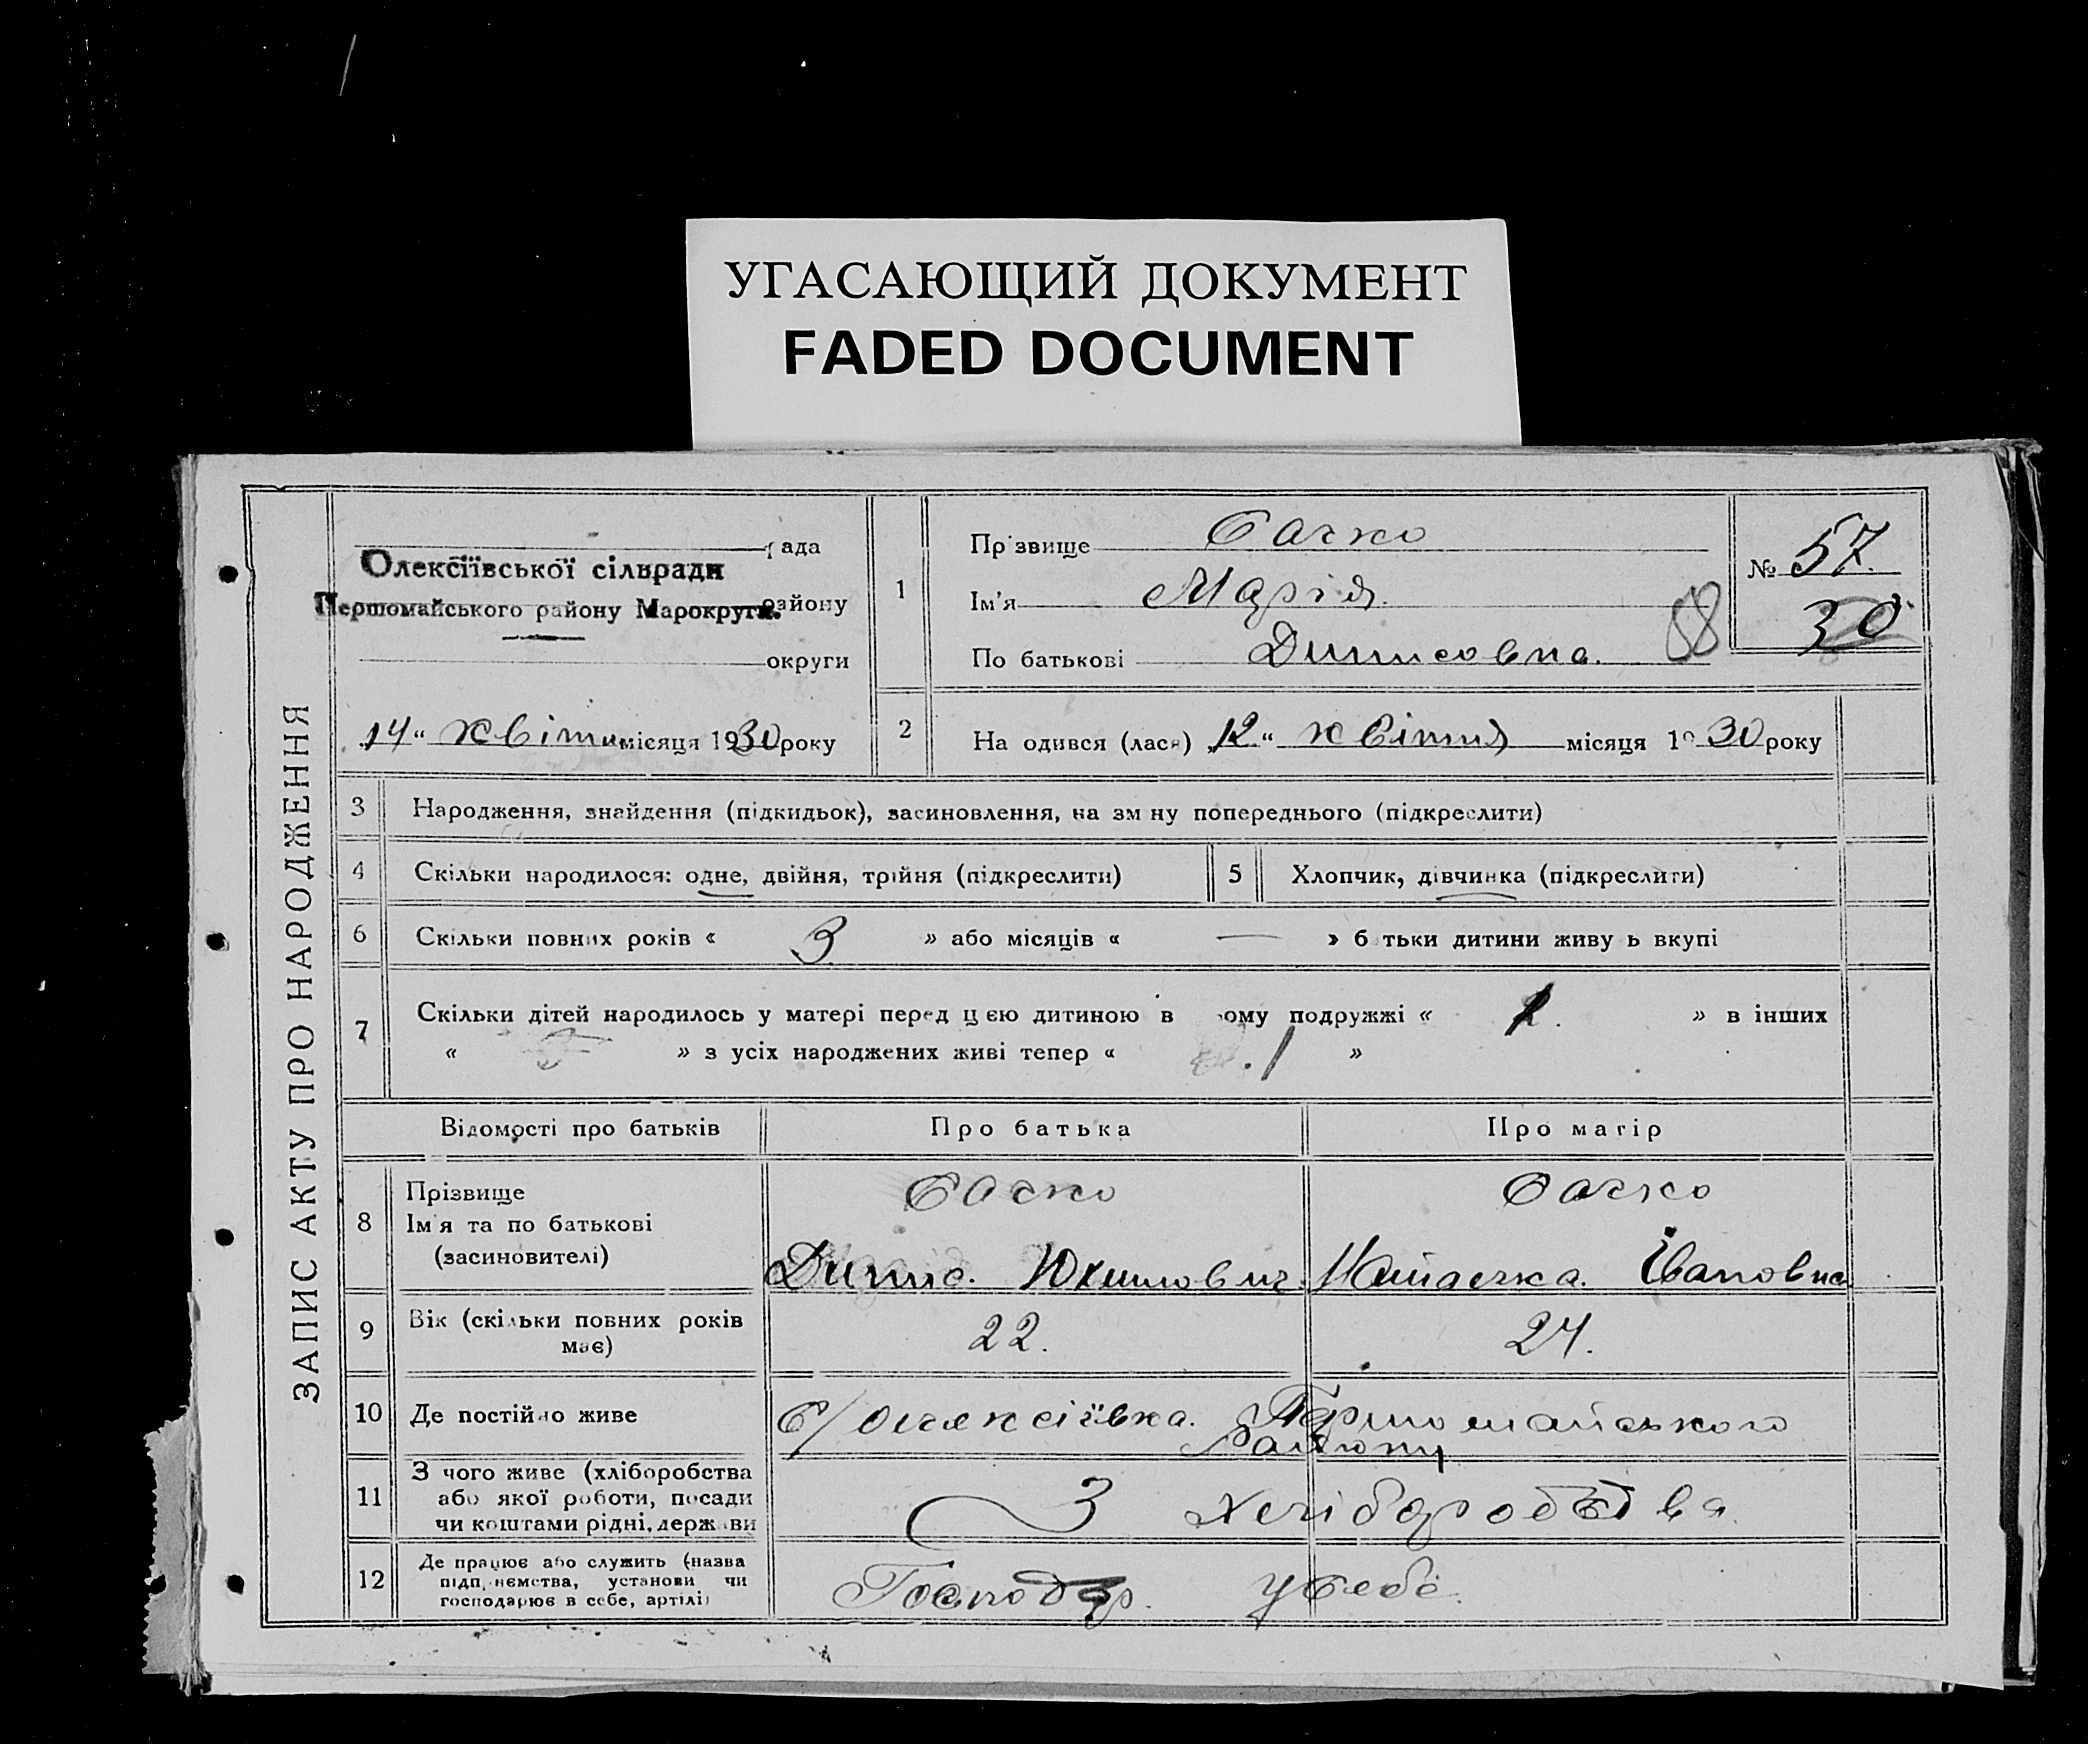 УГАСАЮЩИЙ ДОКУМЕНТ
FADED DOCUMENT
ЗАПИС АКТУ ПРО НАРОДЖЕННЯ
рада
Олексіївської сільради
району
Першомайського району Марокруги.
округи
14 " квітня місяця 1930 року
1
Прізвище Сачко
Ім'я Марія.
По батькові Динисовна.
88
№ 57.
30
2
На одився (лася) "12" квітня місяця 1930 року
3 Народження, знайдення (підкидьок), засиновлення, на зм ну попереднього (підкреслити)
4 Скільки народилося: одне, двійня, трійня (підкреслити) 5 Хлопчик, дівчинка (підкреслити)
6 Скільки повних років « 3 » або місяців « — » б тьки дитини живу ь вкупі
7 Скільки дітей народилось у матері перед цією дитиною в ому подружжі « » в інших
« » з усіх народжених живі тепер « 1 »
Відомості про батьків Про батька Про матір
8 Прізвище Сачко Сачко
Ім'я та по батькові
(засиновителі) Динис. Юхимович. Наталка. Івановна
9 Вік (скільки повних років має) 22. 24.
10 Де постійно живе С/Олексіївка. Першомайського
Району
11 З чого живе (хліборобства
або якої роботи, посади
чи коштами рідні, держави З хліборобства
12 Де працює або служить (назва
підп.ємства, установи чи
господарює в себе, артілі) Господар. у себе.